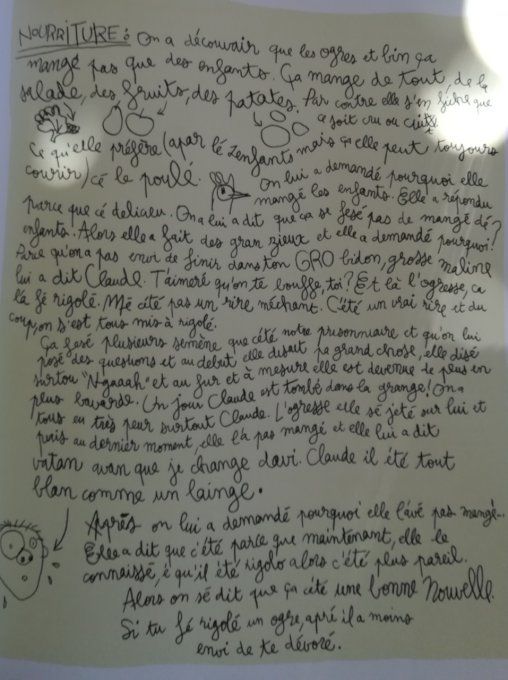 NOURRITURE : On a découvair que les ogres et bin ça
mange pas que des enfants. Ça mange de tout, de la
salade, des fruits, des patates. Par contre elle s'en fiche que
ça soit cru ou cuit.
Ce qu'elle préfère (apar lé zenfants mais ça elle peut toujours
courir) cé le poule.
On lui a demandé pourquoi elle
mangé les enfants. Elle a répondu
parce que cé délicieu. On a lui a dit que ça se fesé pas de mangé dé
enfants. Alors elle a fait des gran zieux et elle a demandé pourquoi?
Parce qu'on a pas envi de finir dans ton GRO bidon, grosse maline
lui a dit Claude. T'aimeré qu'on te bouffe, toi? Et là l'ogresse, ca
la fé rigolé. Mé cété pas un rire méchant. C'été un vrai rire et du
coup, on s'est tous mis à rigolé.
Ça fesé plusieurs semène que cété notre prisonniaire et qu'on lui
posé des questions et au debut elle disait pa grand chose, elle disé
surtou "Ngaaah" et au fur et à mesure elle est devenue de plus en
plus bavarde. Un jour Claude est tombé dans la grange! On a
tous eu très peur surtout Claude. L'ogresse elle sé jeté sur lui et
puis au dernier moment, elle l'a pas mangé et elle lui a dit
vatan avan que je change davi. Claude il été tout
blan comme un lainge.
Après on lui a demandé pourquoi elle l'avé pas mangé.
Elle a dit que c'été parce que maintenant, elle le
connaissé, é qu'il été rigolo alors c'été plus pareil.
Alors on sé dit que ça cété une bonne nouvelle.
Si tu fé rigolé un ogre, apré il a moins
envi de te dévoré.